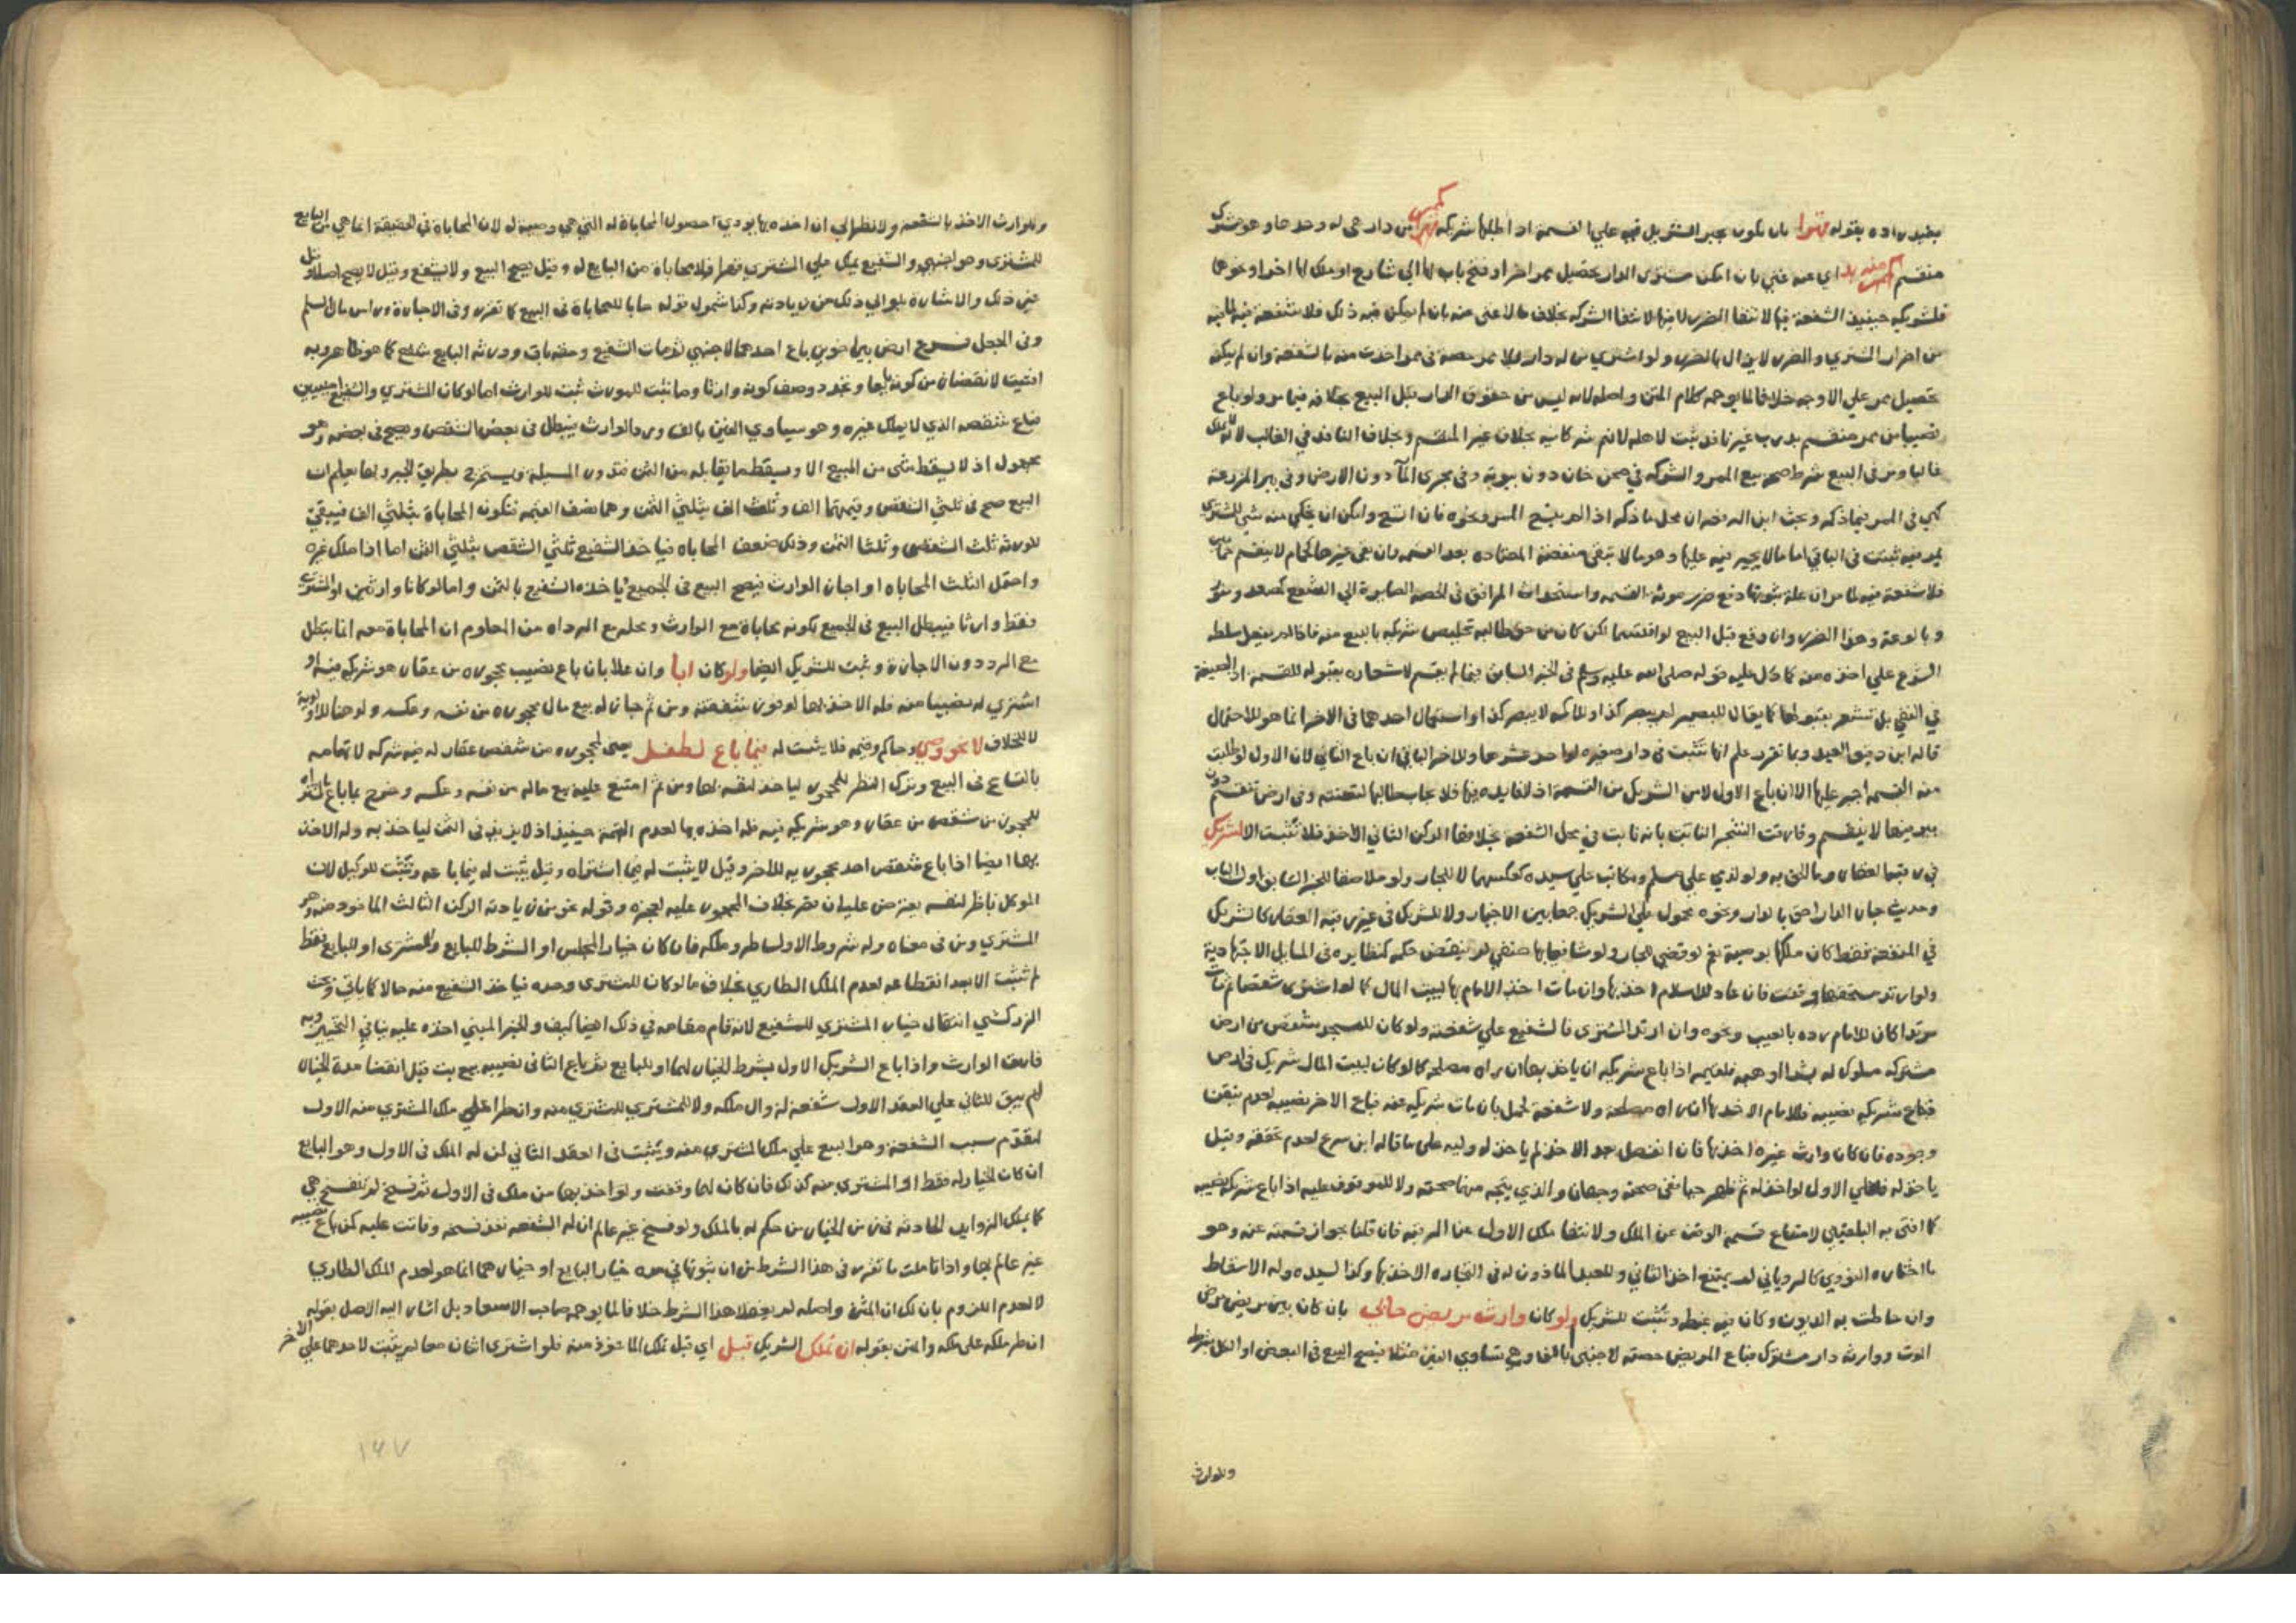 بقيد زاده بقوله قهرا بان يكون يجبر الشريك فيه علي القسمة اذا طلبها شريكه كممر من دار هي له وحدها وهو مشترك
منقسم منه بد اي عنه غني بان امكن مشتري الدار تحصيل ممر اخر او فتح باب لها الي شارع او ملك لها اخر او نحوها
فلشريكه حينيذ الشفعة فيها لانتفا الضرر لا فيها لانتفا الشركه بخلاف ما لا غني عنه بان لم يمكن فيه ذلك فلا شفعة فيه لما فيه
من اضرار المشتري والضرر لا يزال بالضرر ولو اشتري من له دار لا ممر لها حصة في ممر اخذت منه بالشفعة وان لم يمكن
تحصيل ممر علي الاوجه خلافا لما يوهمه كلام المتن واصله لانه ليس من حقوق الدار قبل البيع بخلافه فيما مر ولو باع
نصيبا من ممر منقسم بدرب غير نافذ ثبت لاهله لانهم شركا فيه بخلاف غير المنقسم وبخلاف النافذ في الغالب لانه لا يملك
غالبا ومر في البيع شرط صحة بيع الممر والشركه في صحن خان دون بيوته وفي مجري الما دون الارض وفي بير المزرعة
كهي في الممر فيما ذكر وبحث ابن الرفعة ان محل ما ذكر اذا لم يتسع الممر ونحوه فان اتسع وامكن ان يخلي منه شي للمشتري
يمر فيه ثبتت في الباقي اما ما لا يجبر فيه عليها وهو ما لا تبقي منفعته المعتاده بعد القسمه وان بقي غيرها كحمام لا ينقسم حمامين
فلا شفعة فيه لما مر ان علة ثبوتها دفع ضرر مونة القسمه واستحداث المرافق في الحصه الصايرة الي الشفيع كمصعد ومنور
وبالوعة وهذا الضرر وان وقع قبل البيع لو اقتسما لكن كان من حق طالبه تخليص شريكه بالبيع منه فاذا لم يفعل سلطه
الشرع علي اخذه منه كما دل عليه قوله صلي الله عليه وسلم في الخبر السابق فيما لم يقسم لاشعاره بقبوله للقسمه اذ الصيغة
في النفي بلم تشعر بقبولها كما يقال للبصير لم يبصر كذا وللاكمه لا يبصر كذا واستعمال احدهما في الاخر انما هو للاحتمال
قاله ابن دقيق العيد وبما تقرر علم انها تثبت في دار صغيره لواحد عشرها وللاخر الباقي ان باع الثاني لان الاول لو طلبت
منه القسمه اجبر عليها لا ان باع الاول لامن الشريك من القسمة اذ لا فايده فيها فلا يجاب طالبها لتعنته وفي ارض تنقسم دون
بير فيها لا ينقسم وفارقت الشجر الثابت بانه ثابت في محل الشفعة بخلافها الركن الثاني الاخذ فلا تثبت الا لشريك
في رقبة العقار وما الحق به ولو لذمي علي مسلم ومكاتب علي سيده كعكسهما لا للجار ولو ملاصقا للخبر السابق اول الباب
وحديث جار الدار احق بالدار ونحوه محمول علي الشريك جمعا بين الاخبار ولا للشريك في غير رقبة العقار كالشريك
في المنفعة فقط كان ملكها بوصية نعم لو قضي للجار ولو شافعيا بها حنفي لم ينقض حكمه كنظايره في المسايل الاجتهادية
ولو ارتد مستحقها وقفت فان عاد للاسلام اخذ بها وان مات اخذ الامام بها لبيت المال كما لو اشتري شقصا ثم مات
مرتدا كان للامام رده بالعيب ونحوه وان ارتد المشتري فالشفيع علي شفعته ولو كان للمسجد شقص من ارض
مشتركه مملوك له بشرا او هبه فلقيمه اذا باع شريكه ان ياخذ بها ان راه مصلحة كما لو كان لبيت المال شريك في ارض
فباع شريكه نصيبه فللامام الاخذ بها ان راه مصلحة ولا شفعة لحمل بان مات شريكه عنه فباع الاخر نصيبه لعدم تيقن
وجوده فان كان وارث غيره اخذ بها فان انفصل بعد الاخذ لم ياخذ له وليه علي ما قاله ابن سريج لعدم تحققه وقيل
ياخذ له فعلي الاول لو اخذ له ثم ظهر حيا ففي صحته وجهان والذي يتجه منهما صحته ولا للموقوف عليه اذا باع شريكه نصيبه
كما افتي به البلقيني لامتناع قسمة الوقف عن الملك ولانتفا ملك الاول عن الرقبه فان قلنا بجواز قسمته عنه وهو
ما اختاره النووي كالروياني لم يمتنع اخذ الثاني وللعبد الماذون له في التجاره الاخذ بها وكذا لسيده وله الاسقاط
وان حاطت به الديون وكان فيه غبطه وتثبت للشريك ولو كان وارث مريض حابي بان كان بين مريض مرض
الموت ووارثه دار مشترك فباع المريض حصته لاجنبي بالف وهي تساوي الفين مثلا فيصح البيع في البعض او الكل بشرط
وللوارث
وللوارث الاخذ بالشفعة ولا نظر الي ان اخذه بها يودي لحصول المحاباة له التي هي وصية له لان المحاباة في الحقيقة انما هي من البايع
للمشتري وهو اجنبي والشفيع يملك علي المشتري قهرا فلا محاباة من البايع له وقيل يصح البيع ولا يشفع وقيل لا يصح اصلا وقيل
غير ذلك والاشارة بلو الي ذلك من زيادته وكذا شمول قوله حابا للمحاباة في البيع كما تقرر وفي الاجارة وراس مال السلم
وفي الجعل فرع ارض بين اخوين باع احدهما لاجنبي ثم مات الشفيع وحقه باق وورثه البايع شفع كما هو ظاهر وبه
افتيت لانقضا زمن كونه بايعا وتجدد وصف كونه وارثا وما ثبت للمورث ثبت للوارث اما لو كان المشتري والشفيع اجنبيين
فباع شقصه الذي لا يملك غيره وهو يساوي الفين بالف ورد الوارث فيبطل في بعض الشقص ويصح في بعضه وهو
مجهول اذ لا يسقط شي من المبيع الا ويسقط ما يقابله من الثمن فتدور المسيلة ويستخرج بطريق الجبر وبها يعلم ان
البيع صح في ثلثي الشقص وقيمتهما الف وثلث الف بثلثي الثمن وهما نصف القيمه فتكون المحاباة بثلثي الف فيبقي
للورثه ثلث الشقص وثلثا الثمن وذلك ضعف المحاباه فياخذ الشفيع ثلثي الشقص بثلثي الثمن اما اذا ملك غيره
واحتمل الثلث المحاباه او اجاز الوارث فيصح البيع في الجميع وياخذه الشفيع بالثمن واما لو كانا وارثين او المشتري
فقط وارثا فيبطل البيع في الجميع لكونه محاباة مع الوارث ومحله مع الرد اه من المعلوم ان المحاباة معه انما تبطل
مع الرد دون الاجازة وثبت للشريك ايضا ولو كان ابا وان علا بان باع نصيب محجوره من عقار هو شريكه فيه او
اشتري له نصيبا منه فله الاخذ بها لوفور شفقته ومن ثم جاز له بيع مال محجوره من نفسه وعكسه ولو هنا للاولوية
لا للخلاف لا نحو وصي وحاكم وقيم فلا يثبت له فيما باع لطفل يعني لمحجوره من شقص عقار له فيه شركه لاتهامه
بالتسامح في البيع وترك النظر للمحجور لياخذ لنفسه بها ومن ثم امتنع عليه بيع ماله من نفسه وعكسه وخرج بما باع ما اشتراه
للمحجور من شقص من عقار وهو شريكه فيه فله اخذه بها لعدم التهمة حينيذ اذ لا يزيد في الثمن لياخذ به وله الاخذ
بها ايضا اذا باع شقص احد محجوريه للاخر وقيل لا يثبت له فيما اشتراه وقيل يثبت له فيما باعه وتثبت للوكيل لان
الموكل ناظر لنفسه يعترض عليه ان قصر بخلاف المحجور عليه لعجزه وقوله نحو من زيادته الركن الثالث الماخوذ منه وهو
المشتري ومن في معناه وله شروط الاول ما طرو ملكه فان كان خيار المجلس او الشرط للبايع والمشتري او للبايع فقط
لم تثبت الا بعد انقطاعه لعدم الملك الطاري بخلاف ما لو كان للمشتري وحده فياخذ الشفيع منه حالا كما ياتي وبحث
الزركشي انتقال خيار المشتري للشفيع لانه قام مقامه في ذلك ايضا كيف والجبر المبني اخذه عليه ينافي التخيير وبه
فارق الوارث واذا باع الشريك الاول بشرط الخيار لهما او للبايع ثم باع الثاني نصيبه بيع بت قبل انقضا مدة الخيار
لم يبق للثاني علي العقد الاول شفعة لزوال ملكه ولا للمشتري للمشتري منه وان طرا علي ملك المشتري منه الاول
لتقدم سبب الشفعة وهو البيع علي ملك المشتري منه ويثبت في العقد الثاني لمن له الملك في الاول وهو البايع
ان كان الخيار له فقط او المشتري منه كذلك فان كان لهما وقفت ولو اخذ بها من ملك في الاول ثم فسخ لم تنفسخ هي
كما يملك الزوايد الحادثه في زمن الخيار من حكم له بالملك ولو فسخ غير عالم ان له الشفعه نفذ فسخه وفاتت عليه كمن باع نصيبه
غير عالم بها واذا تاملت ما تقرر في هذا الشرط من ان ثبوتها في مده خيار البايع او خيارهما انما هو لعدم الملك الطاري
لا لعدم اللزوم بان لك ان المتن واصله لم يغفلا هذا الشرط خلافا لما يوهمه صاحب الاسعاد بل اشار اليه الاصل بقوله
ان طر ملكه علي ملكه والمتن بقوله ان تملك الشريك قبل اي قبل تملك الماخوذ منه فلو اشتري اثنان معا لم يثبت لاحدهما علي الاخر
١٤٧